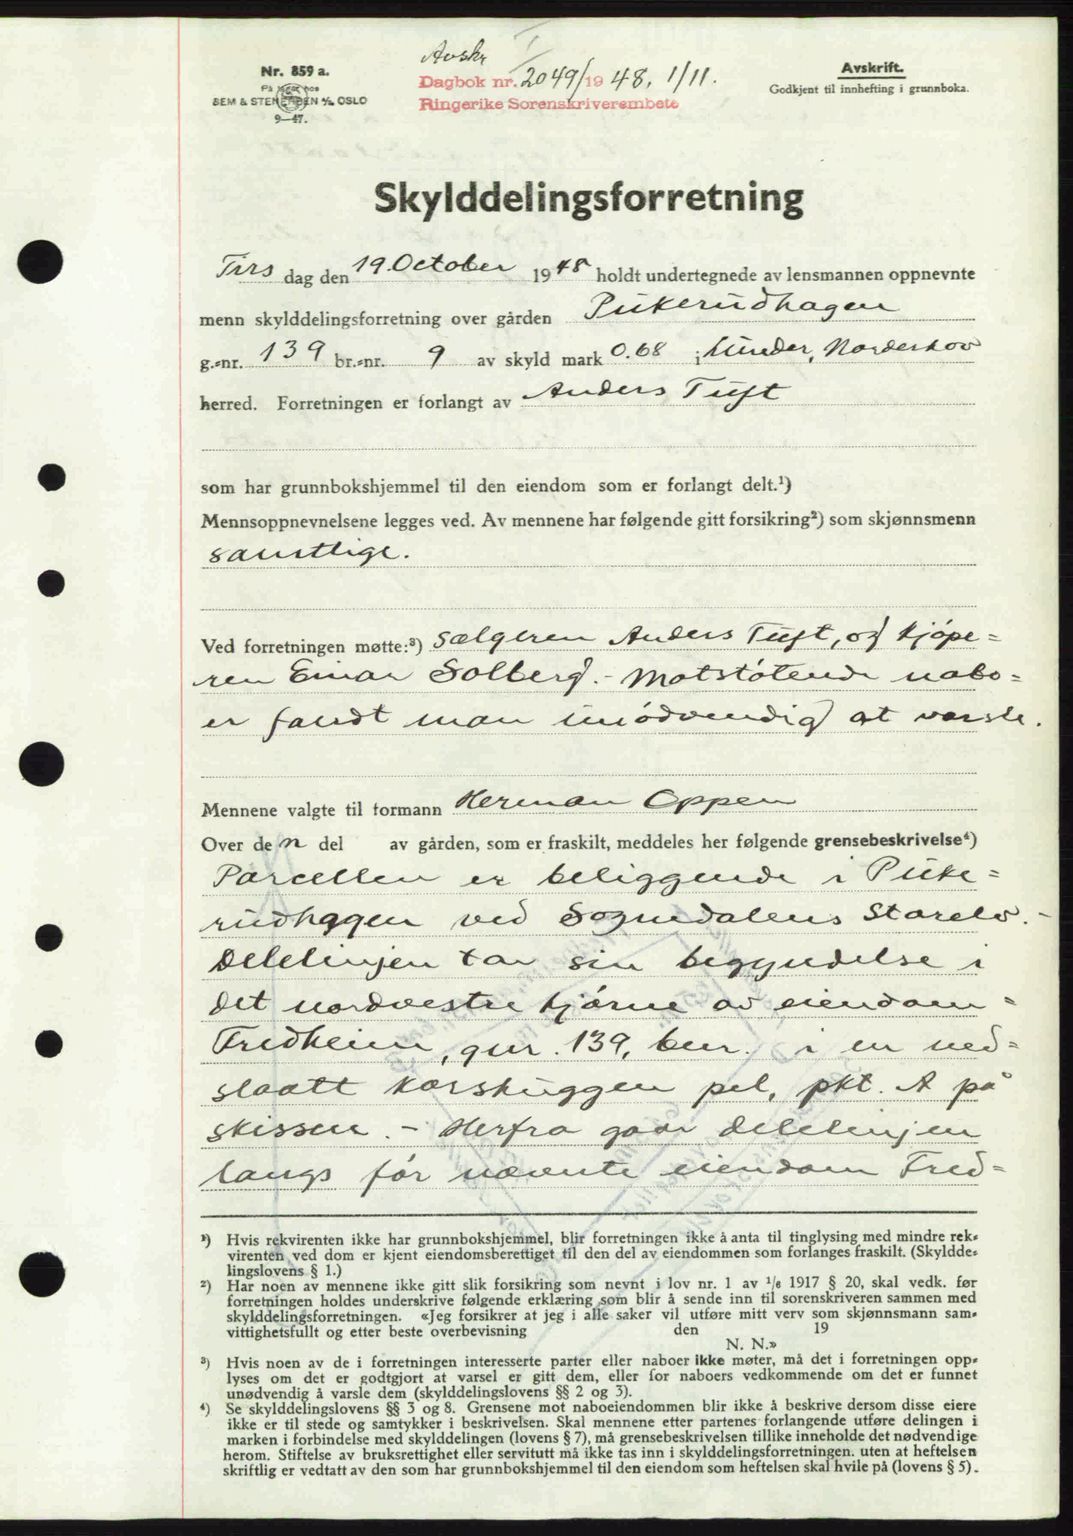 Nr. 859 a.
På lager hos
SEM & STENERSEN A/S, OSLO
9—47.
Avskr
Dagbok nr. 2049/1948, 1/11.
Ringerike Sorenskriverembete
Avskrift.
Godkjent til innhefting i grunnboka.
Skylddelingsforretning
Tirsdag den 19. October 1948 holdt undertegnede av lensmannen oppnevnte
menn skylddelingsforretning over gården Pukerudhagen
g.-nr. 139 br.-nr. 9 av skyld mark 0.68 i Lunder, Norderhov
herred. Forretningen er forlangt av Anders Tuft
som har grunnbokshjemmel til den eiendom som er forlangt delt.¹)
Mennsoppnevnelsene legges ved. Av mennene har følgende gitt forsikring²) som skjønnsmenn
samtlige.
Ved forretningen møtte:³) Sælgeren Anders Tuft, og kjøpe=
ren Einar Solberg. - Motstøtende nabo=
er fandt man unødvendig at varsle.
Mennene valgte til formann Herman Oppen
Over den del av gården, som er fraskilt, meddeles her følgende grensebeskrivelse⁴)
Parcellen er beliggende i Puke=
rudhagen ved Sognedalens Storelv. -
Delelinjen tar sin begyndelse i
det nordvestre hjørne av eiendom=
Fredheim, gnr. 139, bnr. i en ned=
slaatt korshuggen pel, pkt. A på
skissen. - Herfra gaar delelinjen
langs før nævnte eiendom Fred=
¹) Hvis rekvirenten ikke har grunnbokshjemmel, blir forretningen ikke å anta til tinglysing med mindre rek-
virenten ved dom er kjent eiendomsberettiget til den del av eiendommen som forlanges fraskilt. (Skyldde-
lingslovens § 1.)
²) Har noen av mennene ikke gitt slik forsikring som nevnt i lov nr. 1 av ¹/₆ 1917 § 20, skal vedk. før
forretningen holdes underskrive følgende erklæring som blir å sende inn til sorenskriveren sammen med
skylddelingsforretningen. «Jeg forsikrer at jeg i alle saker vil utføre mitt verv som skjønnsmann sam-
vittighetsfullt og etter beste overbevisning den 19
N. N.»
³) Hvis noen av de i forretningen interesserte parter eller naboer ikke møter, må det i forretningen opp-
lyses om det er godtgjort at varsel er gitt dem, eller for naboers vedkommende om det er funnet
unødvendig å varsle dem (skylddelingslovens §§ 2 og 3).
⁴) Se skylddelingslovens §§ 3 og 8. Grensene mot naboeiendommen blir ikke å beskrive dersom disse eiere
ikke er til stede og samtykker i beskrivelsen. Skal mennene etter partenes forlangende utføre delingen i
marken i forbindelse med skylddelingen (lovens § 7), må grensebeskrivelsen tillike inneholde det nødvendige
herom. Stiftelse av bruksrettighet eller servitutt må ikke tas inn i skylddelingsforretningen. uten at heftelsen
skriftlig er vedtatt av den som har grunnbokshjemmel til den eiendom som heftelsen skal hvile på (lovens § 5).